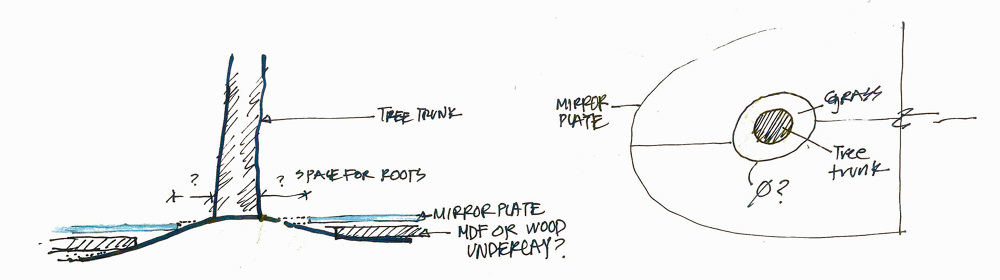 TREE TRUNK
?
? SPACE FOR ROOTS
MIRROR PLATE
MDF OR WOOD
UNDERLAY?
MIRROR
PLATE
GRASS
Tree
trunk
Ø?